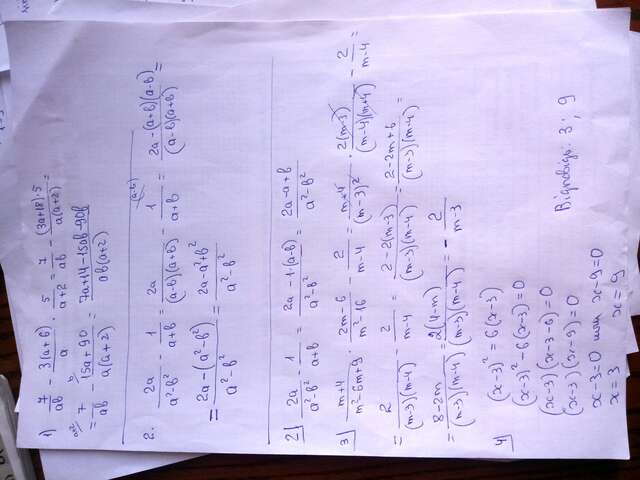 1) 7/ab - 3(a+6)/a · 5/a+2 = 7/ab - (3a+18)·5/a(a+2) =
= 7/ab - 15a+90/a(a+2) = 7a+14-15ab-90b/ab(a+2)
2. 2a/a²-b² - 1/a+b = 2a/(a-b)(a+b) - 1/a+b = 2a-(a+b)(a-b)/(a-b)(a+b) =
= 2a-(a²-b²)/a²-b² = 2a-a²+b²/a²-b²
2) 2a/a²-b² - 1/a+b = 2a-1·(a-b)/a²-b² = 2a-a+b/a²-b²
3) m+4/m²-6m+9 · 2m-6/m²-16 - 2/m-4 = m+4/(m-3)² · 2(m-3)/(m-4)(m+4) - 2/m-4 =
= 2/(m-3)(m-4) - 2/m-4 = 2-2(m-3)/(m-3)(m-4) = 2-2m+6/(m-3)(m-4) =
= 8-2m/(m-3)(m-4) = 2(4-m)/(m-3)(m-4) = - 2/m-3
4) (x-3)² = 6(x-3)
(x-3)² - 6(x-3)=0
(x-3)(x-3-6)=0
(x-3)(x-9)=0
x-3=0 или x-9=0
x=3 x=9
Відповідь: 3; 9